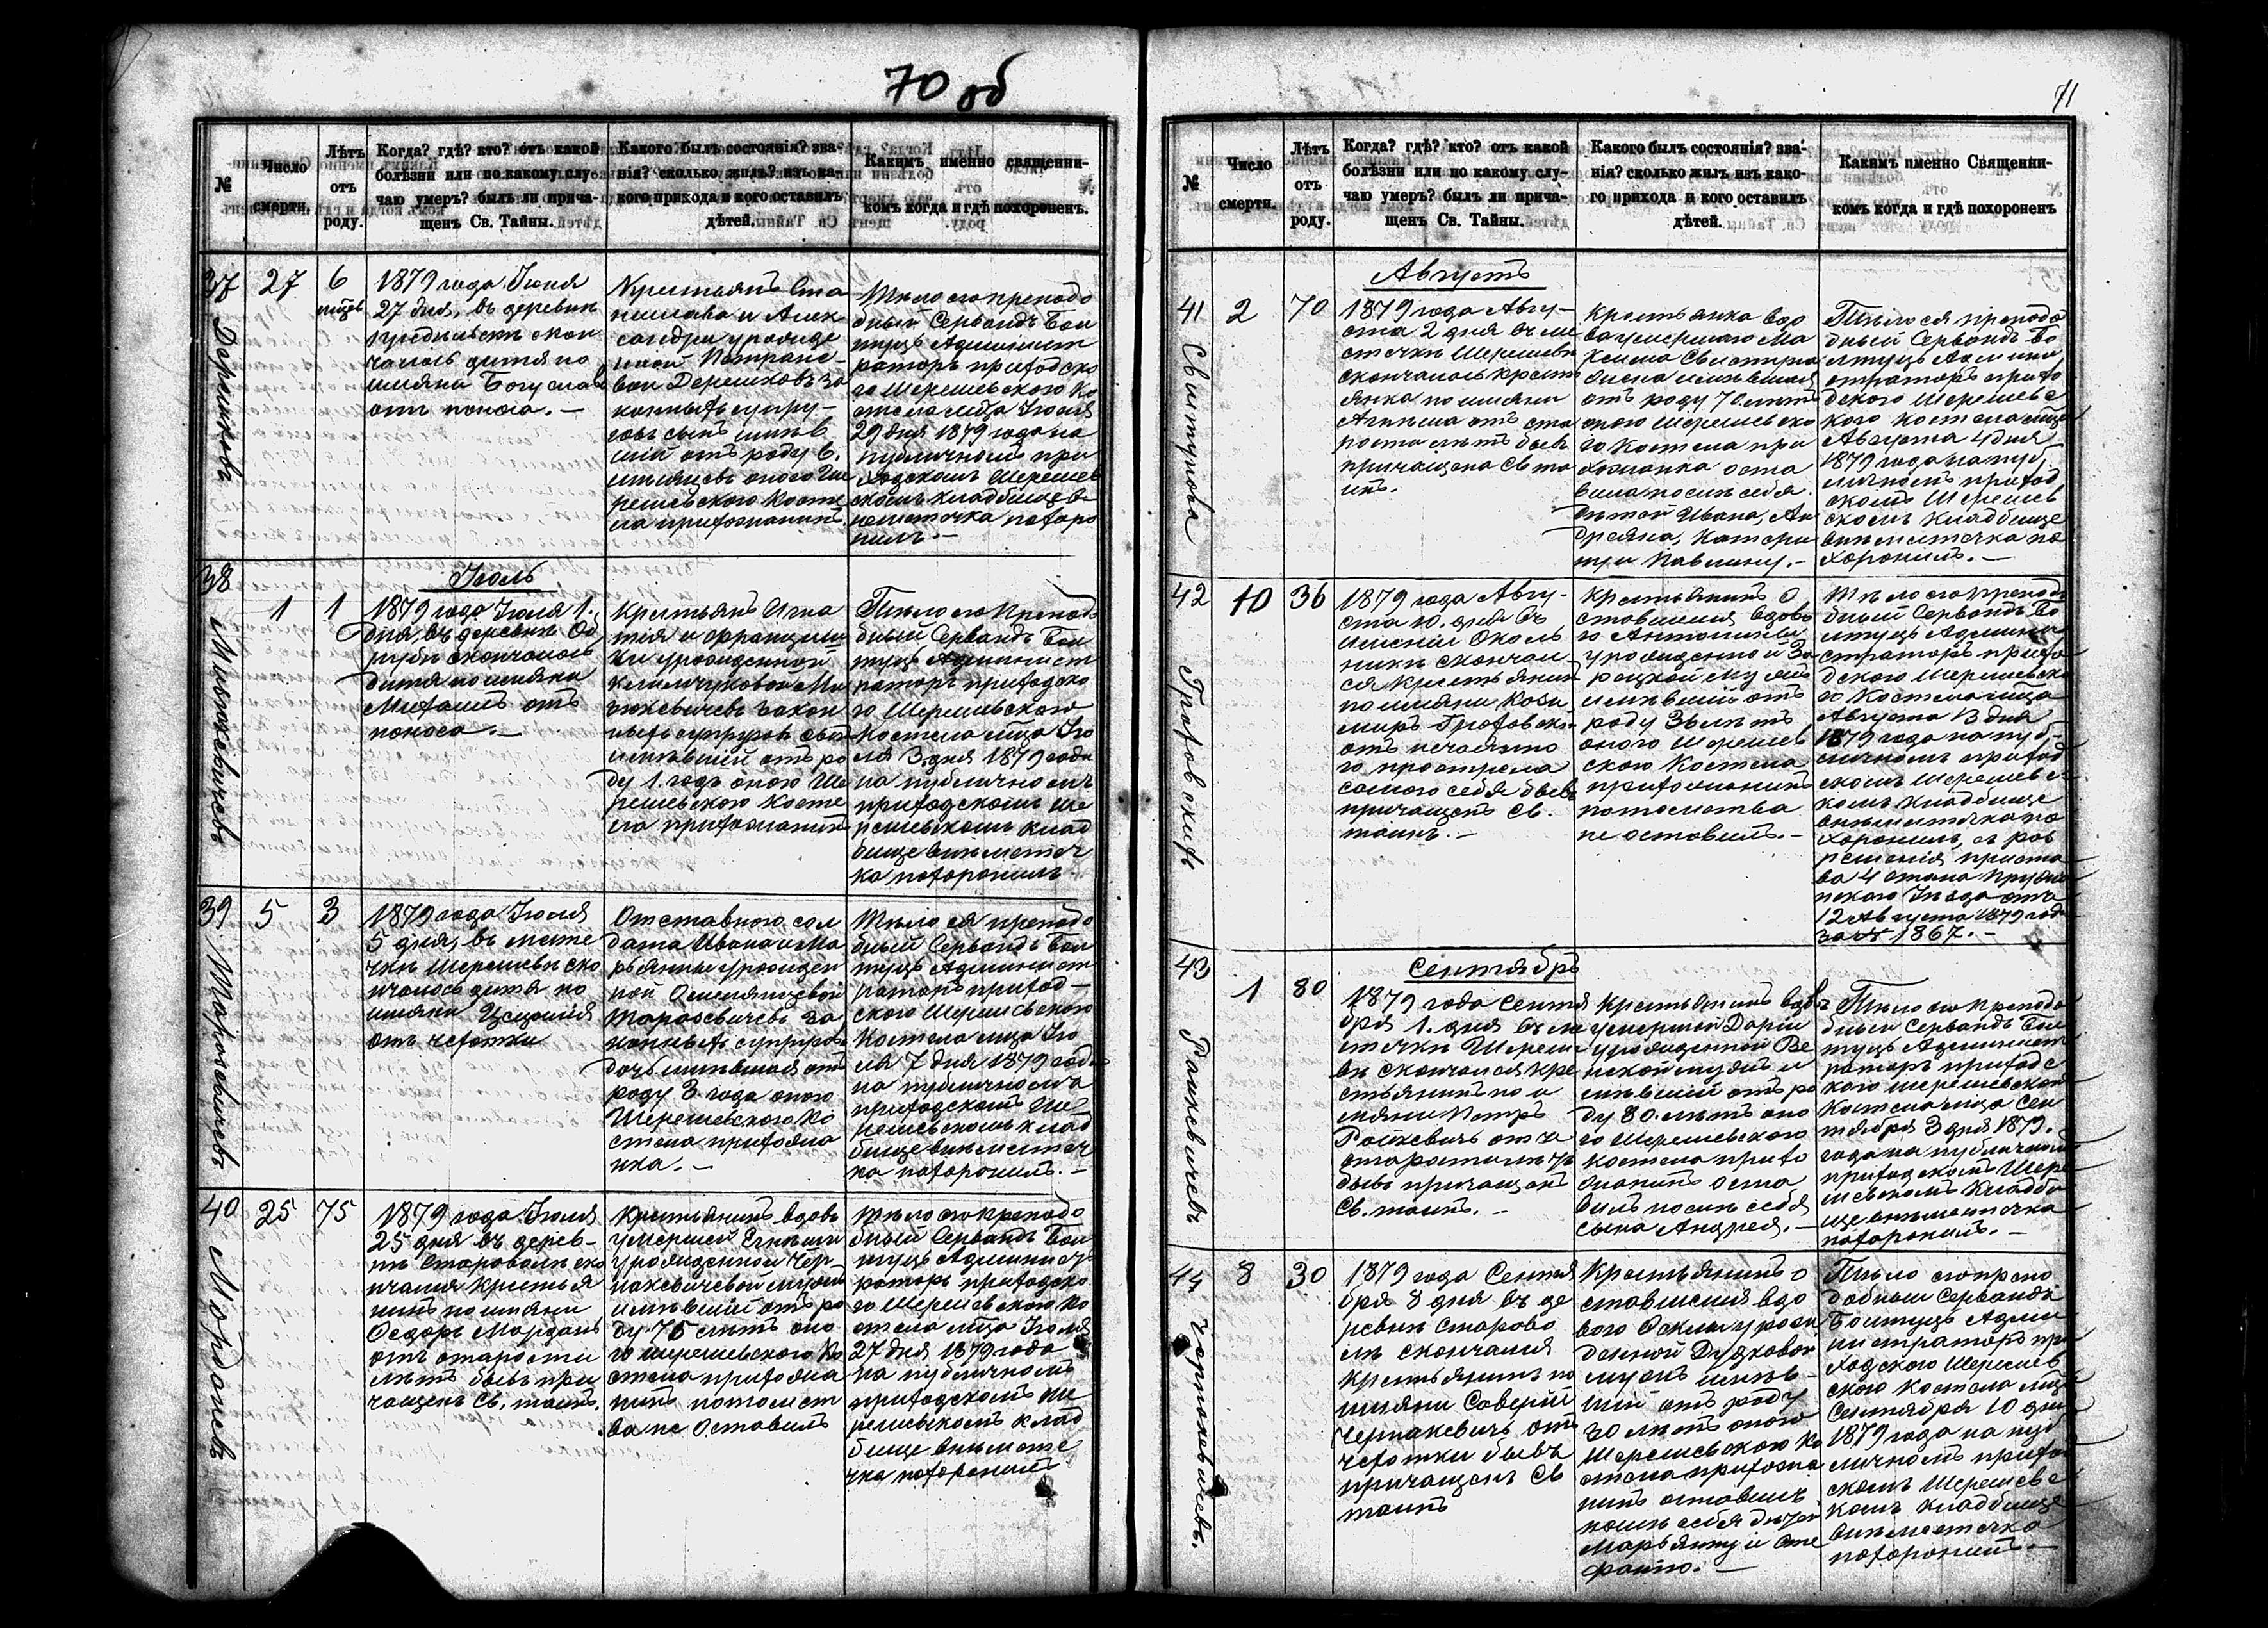 70 об
№
Число
смерти.
Лѣтъ
отъ
роду.
Когда? гдѣ? кто? отъ какой
болѣзни или по какому слу-
чаю умеръ? былъ ли прича-
щенъ Св. Тайны.
Какого былъ состоянія? зва-
нія? сколько жилъ? изъ ка-
кого прихода и кого оставилъ
дѣтей.
Какимъ именно священни-
комъ когда и гдѣ похороненъ.
37
Дерешковъ
27
6
1879 года Іюня
27 дня, въ деревнѣ
скон
чалось дитя по
имяни Богуслав
отъ поноса. —
Крестьянъ Ста
нислава и Алек
сандры урожде
нной
вой Дерешковъ за
конныхъ супру-
говъ сынъ имѣв
шій отъ роду 6.
мѣсяцевъ оного Ше
решевского Косте
ла прихожанинъ.
Тѣло его преподо
бный Сервандъ Бол
туць Администр
раторъ приходско
го Шерешевского Ко
стела м-ца Іюня
29 дня 1879 года на
публичномъ при
ходскомъ Шерешев
скомъ кладбищѣ в
нѣ мѣстечка похоро
нилъ. —
38
1
1
Іюль
1879 года Іюля 1.
дня, въ деревнѣ Од
рубы скончалось
дитя по имяни
Михаилъ отъ
поноса. —
Крестьянъ Игна
тія и Францишки
урожденной
законныхъ супруговъ сынъ
имѣвшій отъ ро
ду 1. годъ оного Ше
решевского Косте
ла прихожанинъ
Тѣло его преподо
бный Сервандъ Бол
туць Админист
раторъ приходско
го Шерешевского
Костела м-ца Ію
ля 3 дня 1879 года
на публичномъ
приходскомъ Ше
решевскомъ клад
бищѣ внѣ мѣстеч
ка похоронилъ.
39
Тарасевичевъ
5
3
1879 года Іюля
5 дня, въ мѣсте
чкѣ Шерешевѣ ско
нчалось дитя по
имяни Цецилія
отъ чехотки
Отставного сол
дата Ивана и Ма
рьянны урожден
ной
Тарасевичевъ за
конныхъ супруговъ
дочь имѣвшая отъ
роду 3 года оного
Шерешевского Ко
стела прихожа
нка. —
Тѣло ея преподо
бный Сервандъ Бол
туць Администр
раторъ приход-
ского Шерешевского
Костела м-ца Ію
ля 7 дня 1879 года
на публичномъ
приходскомъ Ше
решевскомъ клад
бищѣ внѣ мѣстеч
ка похоронилъ. —
40
25
75
1879 года Іюля
25 дня въ дерев-
нѣ Староволѣ ско
нчался крестья
нинъ по имяни
Ѳедоръ Морданъ
отъ старости
лѣтъ бывъ при
чащенъ Св. таинъ.
Крестьянинъ вдовъ
умершей
урожденной Чер-
накевичевой мужъ
имѣвшій отъ ро
ду 75 лѣтъ оно
го Шерешевского Ко
стела прихожа
нинъ потомст
ва не оставилъ
Тѣло его преподо
бный Сервандъ Бол
туць Администр
раторъ приходско
го Шерешевского Ко
стела м-ца Іюля
27 дня 1879 года
на публичномъ
приходскомъ Ше
решевскомъ клад
бищѣ внѣ мѣсте
чка похоронилъ
71
№
Число
смерти.
Лѣтъ
отъ
роду.
Когда? гдѣ? кто? отъ какой
болѣзни или по какому слу-
чаю умеръ? былъ ли прича-
щенъ Св. Тайны.
Какого былъ состоянія? зва-
нія? сколько жилъ изъ како-
го прихода и кого оставилъ
дѣтей.
Какимъ именно Священни-
комъ когда и гдѣ похороненъ
41
2
70
Августъ
1879 года Авгу-
ста 2 дня въ мѣ
стечкѣ Шерешевѣ
скончалась крест
янка по имяни
отъ ста
рости лѣтъ бывъ
причащена Св та
инъ.
Крестьянка вдо
ва умершего Ма
жена имѣвшая
отъ роду 70 лѣтъ
оного Шерешевско
го Костела при
хожанка оста
вила послѣ себя
дѣтей Ивана, Ан
дреяна, Катери
ну и Павлину. —
Тѣло ея преподо
бный Сервандъ Бо
лтуць Админи
страторъ прихо
дского Шерешевс
кого Костела м-ца
Августа 4 дня
1879 года на пуб
личномъ приход
скомъ Шерешев
скомъ кладбищѣ
внѣ мѣстечка по
хоронилъ. —
42
10
36
1879 года Авгу-
ста 10. дня въ
имѣніи Околь
никѣ скончал
ся крестьянин
по имяни Кази
миръ
отъ нечаянно
го прострела
самого себя бывъ
причащенъ Св.
таинъ. —
Крестьянинъ о
ставшейся вдово
ю Антонины
урожденной За
рецкой мужъ
имѣвшій отъ
роду 36 лѣтъ
оного Шерешев
ского Костела
прихожанинъ
потомства
не оставилъ. —
Тѣло его преподо
бный Сервандъ Бо
лтуць Админи
страторъ прихо
дского Шерешевско
го Костела м-ца
Августа 13 дня
1879 года на пуб-
личномъ приход
скомъ Шерешевс
комъ кладбищѣ
внѣ мѣстечка по
хоронилъ, съ раз
решенія приста
ва 4 стана Пружа
нского Уѣзда отъ
12 Августа 1879 года
за № 1867. —
43
Рошкевичевъ
1
80
Сентябрь
1879 года Сентя
бря 1. дня въ мѣ
стечкѣ Шереше
вѣ скончался кре
стьянинъ по и
мяни Петръ
Рошкевичъ отъ
старости лѣтъ
бывъ причащенъ
Св. таинъ. —
Крестьянинъ вдовъ
умершей Даріи
урожденной
мужъ и
мѣвшій отъ ро
ду 80. лѣтъ оно
го Шерешевского
костела прихо
жанинъ оста
вилъ послѣ себя
сына Андрея. —
Тѣло его преподо
бный Сервандъ Бол
туць Администр
раторъ приходс
кого Шерешевского
Костела м-ца Сен
тября 3 дня 1879.
года на публичном
приходскомъ Шере
шевскомъ кладби
щѣ внѣ мѣстечка
похоронилъ. —
44
8
30
1879 года Сентя
бря 8 дня въ де
ревнѣ Старово
лѣ скончался
крестьянинъ по
имяни Саверій
Чернакевичъ отъ
чехотки бывъ
причащенъ Св
таинъ
Крестьянинъ о
ставшейся вдо
вою Ѳеклы урож
денной
мужъ имѣв-
шій отъ роду
30 лѣтъ оного
Шерешевского Ко
стела прихожа
нинъ оставилъ
послѣ себя дѣтей
Марьянну и Сте
фанію. —
Тѣло его препо
добный Сервандъ
Болтуць Адми
нистраторъ при
ходского Шерешев
ского Костела м-ца
Сентября 10 дня
1879 года на пуб
личномъ приход
скомъ Шерешевс
комъ кладбищѣ
внѣ мѣстечка
похоронилъ. —